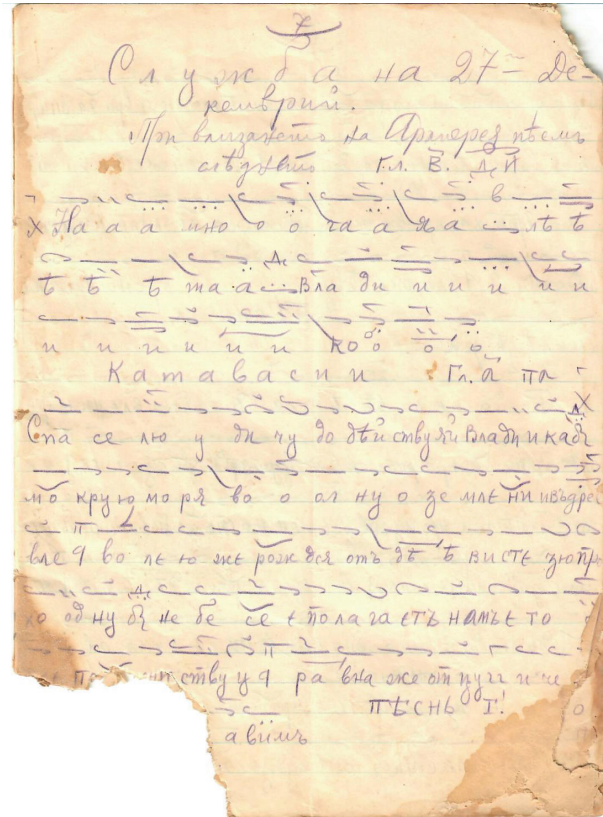 7
Служба на 27 Де-
кемврий.
При влизането на Архиерея пѣемъ
слѣднѣто Гл. В. Ди
На а а мно о о га а я а лѣ ѣ
ѣ ѣ ѣ та а Вла ди и и и и и
и и и и и и ко о о о
Катавасии Гл. а па
Спа се лю у ди чу до дѣй ствуяй Влади ка
мо крую мо ря во о ол ну о зе млє ни издре
вле я во лє ю же рождся отъ дѣ ѣ ви стє зю пр
хо од ну не бе се є полагаєтъ намъ є то
ству ц я ра вна же от цу и че
пѣснь I!
а виимъ